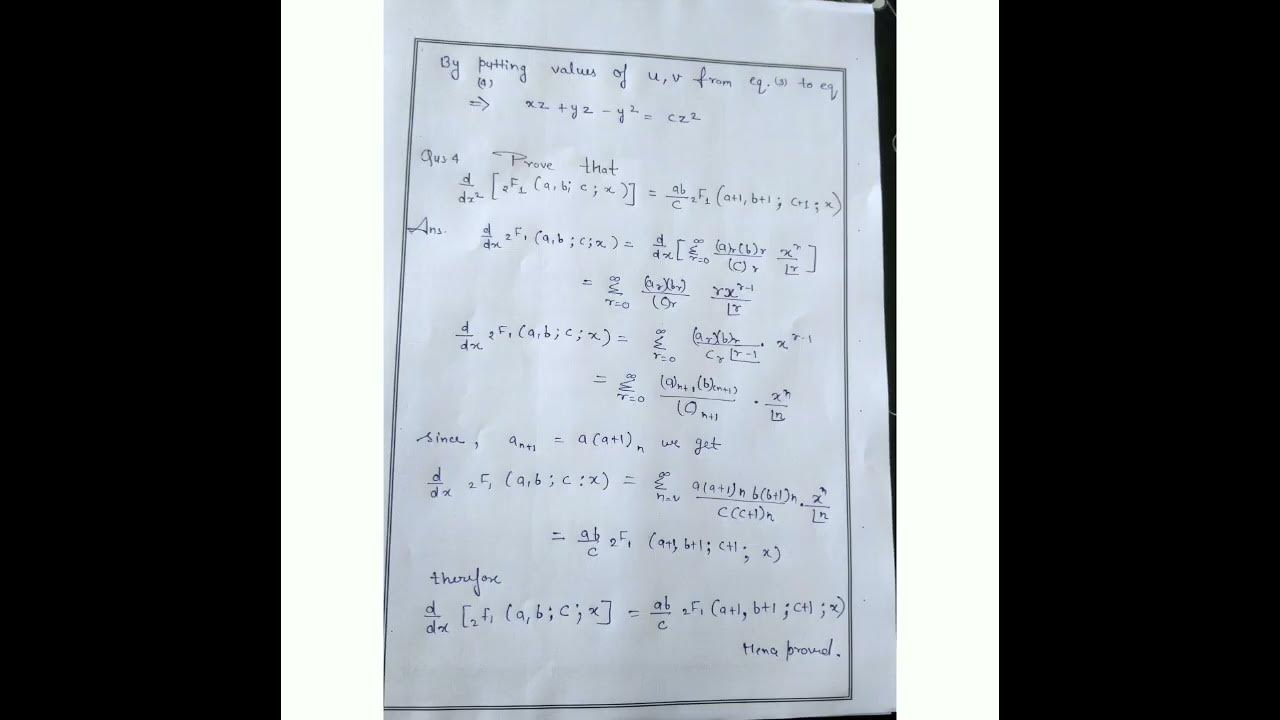 By putting values of u, v from eq. (3) to eq
(4)
⇒ xz + yz - y² = cz²
Qus 4 Prove that
d/dx² [₂F₁ (a, b; c; x)] = ab/c ₂F₁ (a+1, b+1; c+1; x)
Ans. d/dx ₂F₁ (a, b; c; x) = d/dx [∑_{r=0}^{∞} (a)r (b)r/(c)r x^r/⌊r]
= ∑_{r=0}^{∞} (ar)(br)/()r r x^{r-1}/⌊r
d/dx ₂F₁ (a, b; c; x) = ∑_{r=0}^{∞} (ar)(b)r/(c_r ⌊r-1) . x^{r-1}
= ∑_{r=0}^{∞} (a)_{n+1} (b)_{(n+1)}/()_{n+1} . x^n/⌊n
since, a_{n+1} = a(a+1)_n we get
d/dx ₂F₁ (a, b; c : x) = ∑^{∞} a(a+1)n b(b+1)n/c(c+1)n . x^n/⌊n
= ab/c ₂F₁ (a+1, b+1; c+1; x)
therefore
d/dx [₂f₁ (a, b; c; x] = ab/c ₂F₁ (a+1, b+1; c+1; x)
Henc proved.